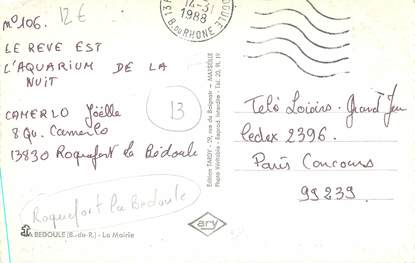 n°106. 12€
LE REVE EST
L'AQUARIUM DE LA
NUIT
CAMERLO Joëlle
8 Qu. Camerlo
13830 Roquefort la Bedoule
13
Roquefort la Bedoule
LA BEDOULE (B.-du-R.) - La Mairie
14-3
1988
B.DU RHONE
Edition TARDY - 29, rue de Baignoir - MARSEILLE
Photo Véritable - Reprod. Interdite
ary
Télé Loisirs. Grand Jeu
Cedex 2396.
Paris Concours
99239.